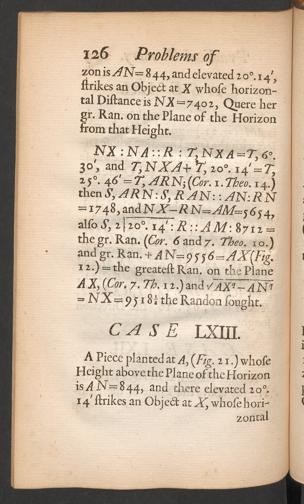 126 Problems of
zon is AN=844, and elevated 20°.14′,
ſtrikes an Object at X whoſe horizon-
tal Diſtance is NX=7402, Quere her
gr. Ran. on the Plane of the Horizon
from that Height.
NX : NA :: R : T, NXA=T, 6°.
30′, and T, NXA+T, 20°. 14′=T,
25°. 46′=T, ARN; (Cor. 1. Theo. 14.)
then S, ARN : S, RAN :: AN : RN
=1748, and NX−RN=AM=5654,
alſo S, 2|20°. 14′ : R :: AM : 8712=
the gr. Ran. (Cor. 6 and 7. Theo. 10.)
and gr. Ran. + AN=9556=AX (Fig.
12.)= the greateſt Ran. on the Plane
AX, (Cor. 7. Th. 12.) and √AXq−ANq
=NX=9518¾ the Randon ſought.
CASE LXIII.
A Piece planted at A, (Fig. 21.) whoſe
Height above the Plane of the Horizon
is AN=844, and there elevated 20°.
14′ ſtrikes an Object at X, whoſe hori-
zontal